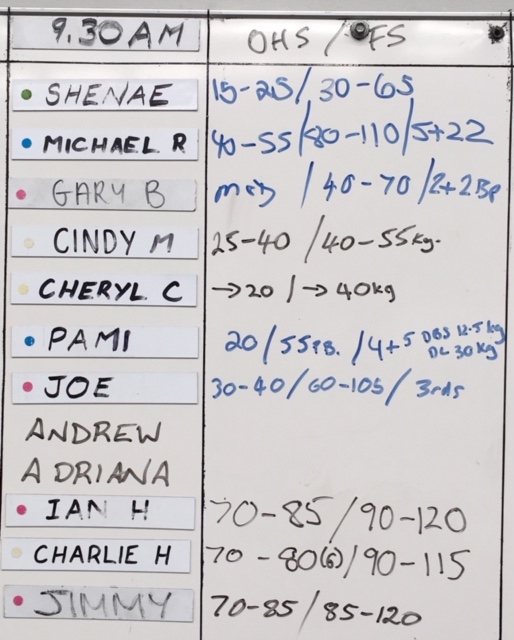 9.30AM OHS / FS
SHENAE 15-25/ 30-65
MICHAEL R 40-55/80-110/5+22
GARY B / 40-70 /2+2BP
CINDY M 25-40 /40-55kg.
CHERYL C →20 / → 40kg
PAMI 20/55PB. /4+5 DBS 12.5kg
DL 30kg
JOE 30-40/60-105/ 3rds
ANDREW
ADRIANA
IAN H 70-85/90-120
CHARLIE H 70-80(6)/90-115
JIMMY 70-85/85-120